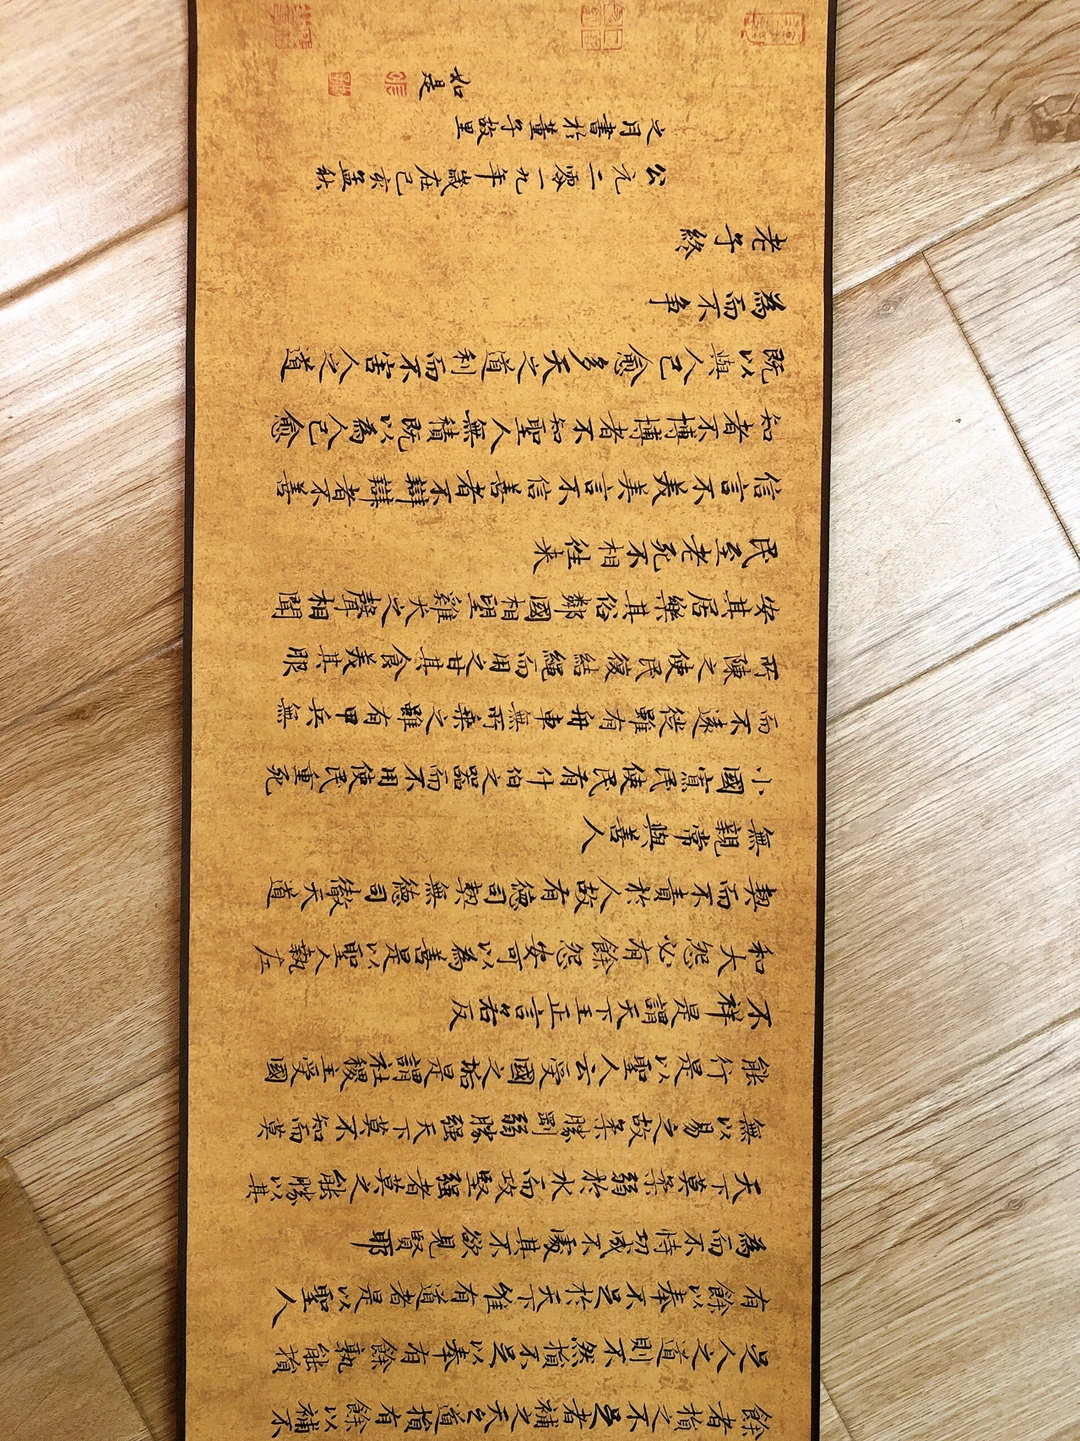 餘者損之不足者補之天之道損有餘以補不
足人之道則不然損不足以奉有餘孰能損
有餘以奉不足於天下唯有道者是以聖人
為而不恃功成不處其不欲見賢耶
天下莫柔弱於水而攻堅强者莫之能勝以其
無以易之故柔勝剛弱勝强天下莫不知而莫
能行是以聖人云受國之垢是謂社稷主受國
不祥是謂天下王正言若反
和大怨必有餘怨安可以為善是以聖人執左
契而不責於人故有德司契無德司徹天道
無親常與善人
小國寡民使民有什伯之器而不用使民重死
而不遠徙雖有舟車無所乘之雖有甲兵無
所陳之使民復結繩而用之甘其食美其服
安其居樂其俗鄰國相望雞犬之聲相聞
民至老死不相往来
信言不美美言不信善者不辯辯者不善
知者不博博者不知聖人無積既以為人己愈
既以與人己愈多天之道利而不害人之道
為而不争
老子終
公元二零一九年歲在己亥孟秋
之月書於董子故里
如是